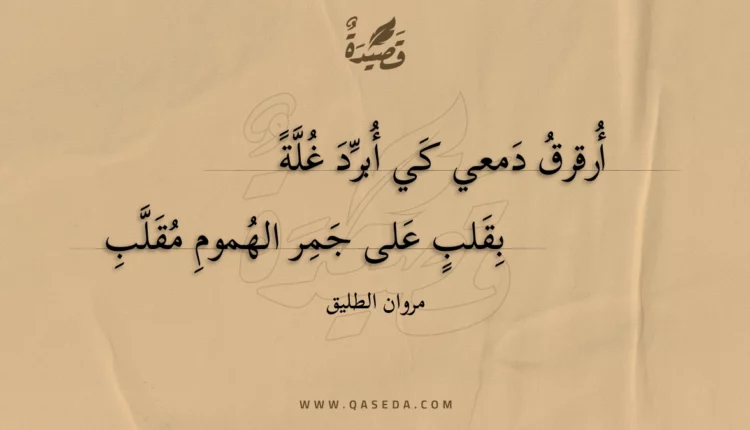 قَصِيْدَةٌ
أُرقرقُ دَمعي كَي أُبرِّدَ غُلَّةً
بِقَلبٍ عَلى جَمِر الهُمومِ مُقَلَّبِ
مروان الطليق
WWW.QASEDA.COM